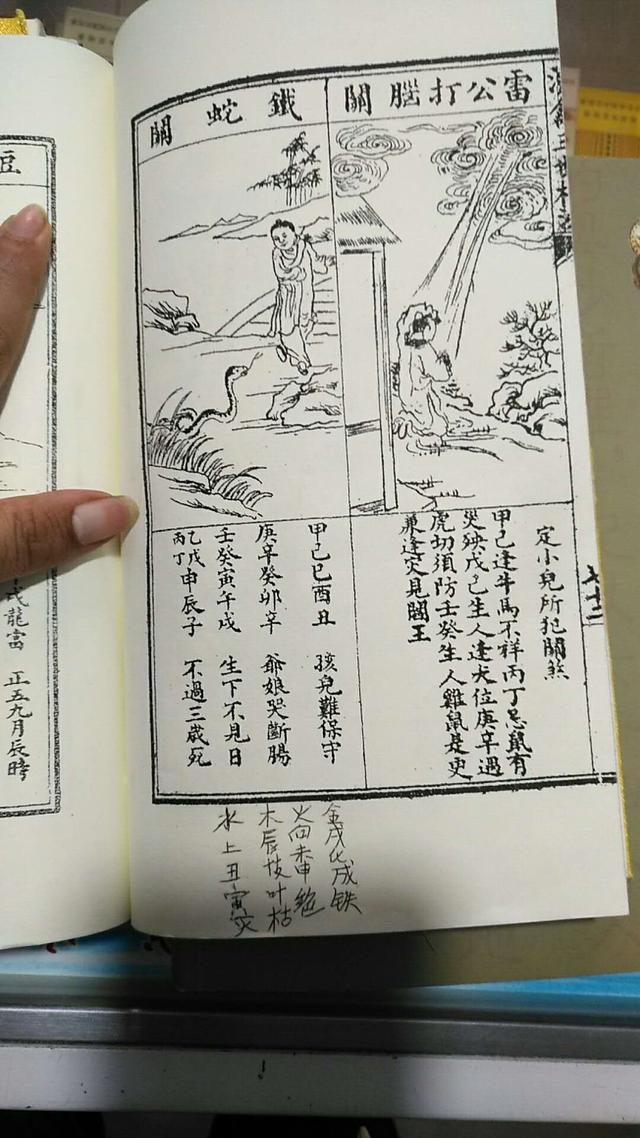 雷公打腦關
定小兒所犯關煞
甲己逢牛馬不祥丙丁忌鼠有
災殃戊己生人逢犬位庚辛遇
虎切須防壬癸生人雞鼠是更
兼逢灾見閻王
鐵蛇關
甲己巳酉丑 孩兒難保守
庚辛癸卯辛 爺娘哭斷腸
壬癸寅午戌 生下不見日
乙戊丙丁申辰子 不過三歲死
金戌化成铁
火向未申絕
木辰枝叶枯
水上丑寅灾
七十二
戌龍富 正五九月辰時